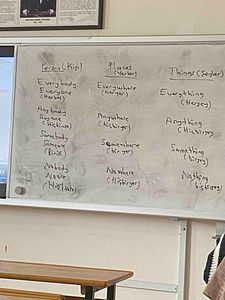 Person (Kişi)
Everybody
Everyone
(Herkes)
Anybody
Anyone
(Hiçkimse)
Somebody
Someone
(Birisi)
Nobody
None
Places
(Yerler)
Everywhere
(Heryer)
Anywhere
(Hiçbiryer)
Somewhere
(biryer)
Nowhere
(Hiçbiryer)
Things (Şeyler)
Everything
(Herşey)
Anything
(Hiçbirşey)
Something
(birşey)
Nothing
(hiçbirşey)